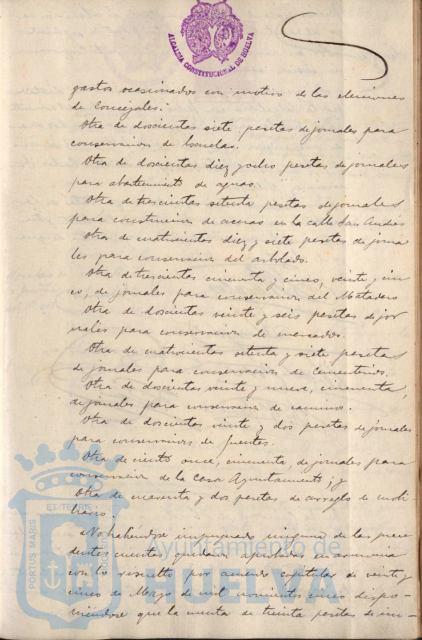 ALCALDIA CONSTITUCIONAL DE HUELVA
gastos ocasionados con motivo de las elecciones
de Concejales.
Otra de doscientas siete, pesetas de jornales para
conservacion de Escuelas.
Otra de doscientas diez y ocho pesetas de jornales
para abastecimiento de aguas.
Otra de trescientas setenta pesetas de jornales
para construccion de aceras en la calle San Andrés
Otra de cuatrocientas diez y siete pesetas de jorna-
les para conservacion del arbolado.
Otra de trescientas cincuenta y cinco, veinte y cin-
co, de jornales para conservacion del Matadero
Otra de doscientas veinte y seis pesetas de jor-
nales para conservacion de mercados.
Otra de cuatrocientas setenta y siete pesetas
de jornales para conservacion de Cementerios.
Otra de doscientas veinte y nueve, cincuenta,
de jornales para conservacion de caminos.
Otra de doscientas veinte y dos pesetas de jornales
para conservacion de fuentes.
Otra de ciento once, cincuenta, de jornales para
conservacion de la Casa Ayuntamiento; y
Otra de cuarenta y dos pesetas de arreglo de mobi-
liario.
No habiéndose impugnado ninguna de las prece-
dentes cuentas, quedaron aprobadas en armonia
con lo resuelto por acuerdo capitular de veinte y
cinco de Mayo de mil novecientos cinco dispo-
niéndose que la cuenta de treinta pesetas de im-
PORTUS MARIS
ET TERRE
Ayuntamiento de
HUELVA